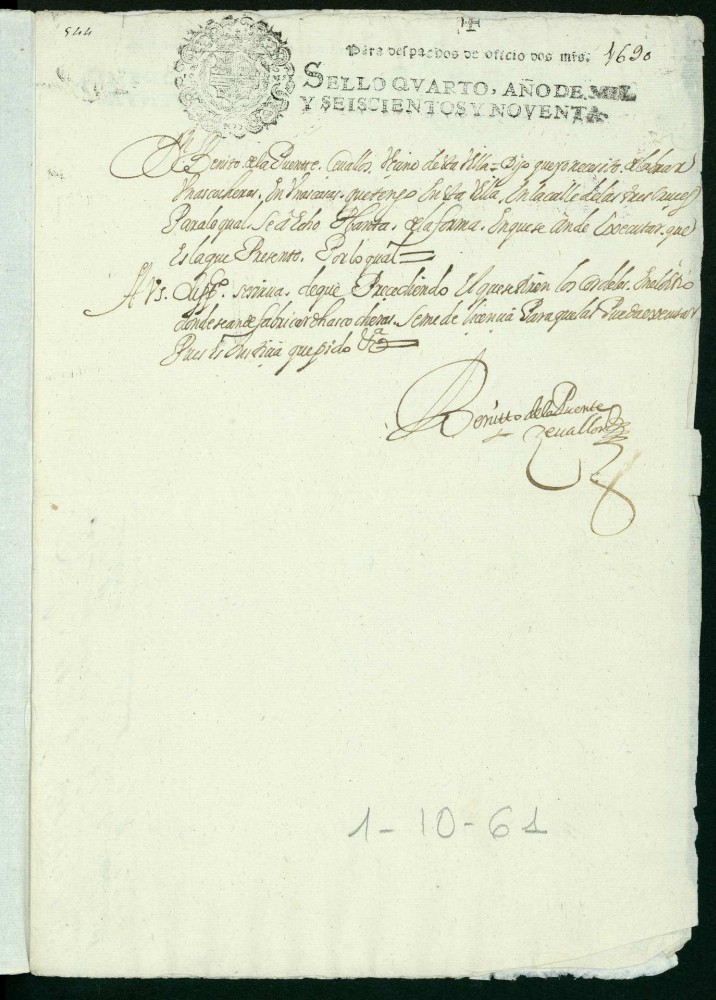 544
Para despachos de oficio dos mrs. 1690
SELLO QVARTO, AÑO DE MIL
Y SEISCIENTOS Y NOVENTA
Benito de la Puente. Ceuallos. Vezino desta Villa = Digo que yo necesito. de labrar
Vnas cocheras. En Vnas casas. que tengo En esta Villa. En la calle de las tres Cruces
Para lo qual. Se a Echo Planta. de la forma. En que se an de Executar. que
Es la que Presento. Por lo qual =
A V.S. Suppco. se sirua. de que Precediendo El que se tiren los cordeles. En el sitio
donde se an de fabricar dhas cocheras. Se me de licencia Para que las Pueda executar
Pues Es Justicia que pido &a =
Benitto de la Puente
Zeuallos
1-10-61